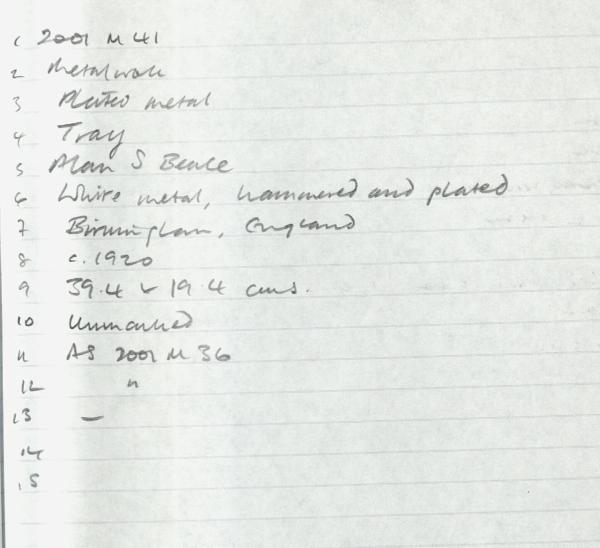 1 2001 M 41
2 Metalwork
3 Plated metal
4 Tray
5 Alan S Beale
6 White metal, hammered and plated
7 Birmingham, England
8 c. 1920
9 39.4 x 19.4 cms.
10 Unmarked
11 AS 2001 M 36
12 "
13 —
14
15